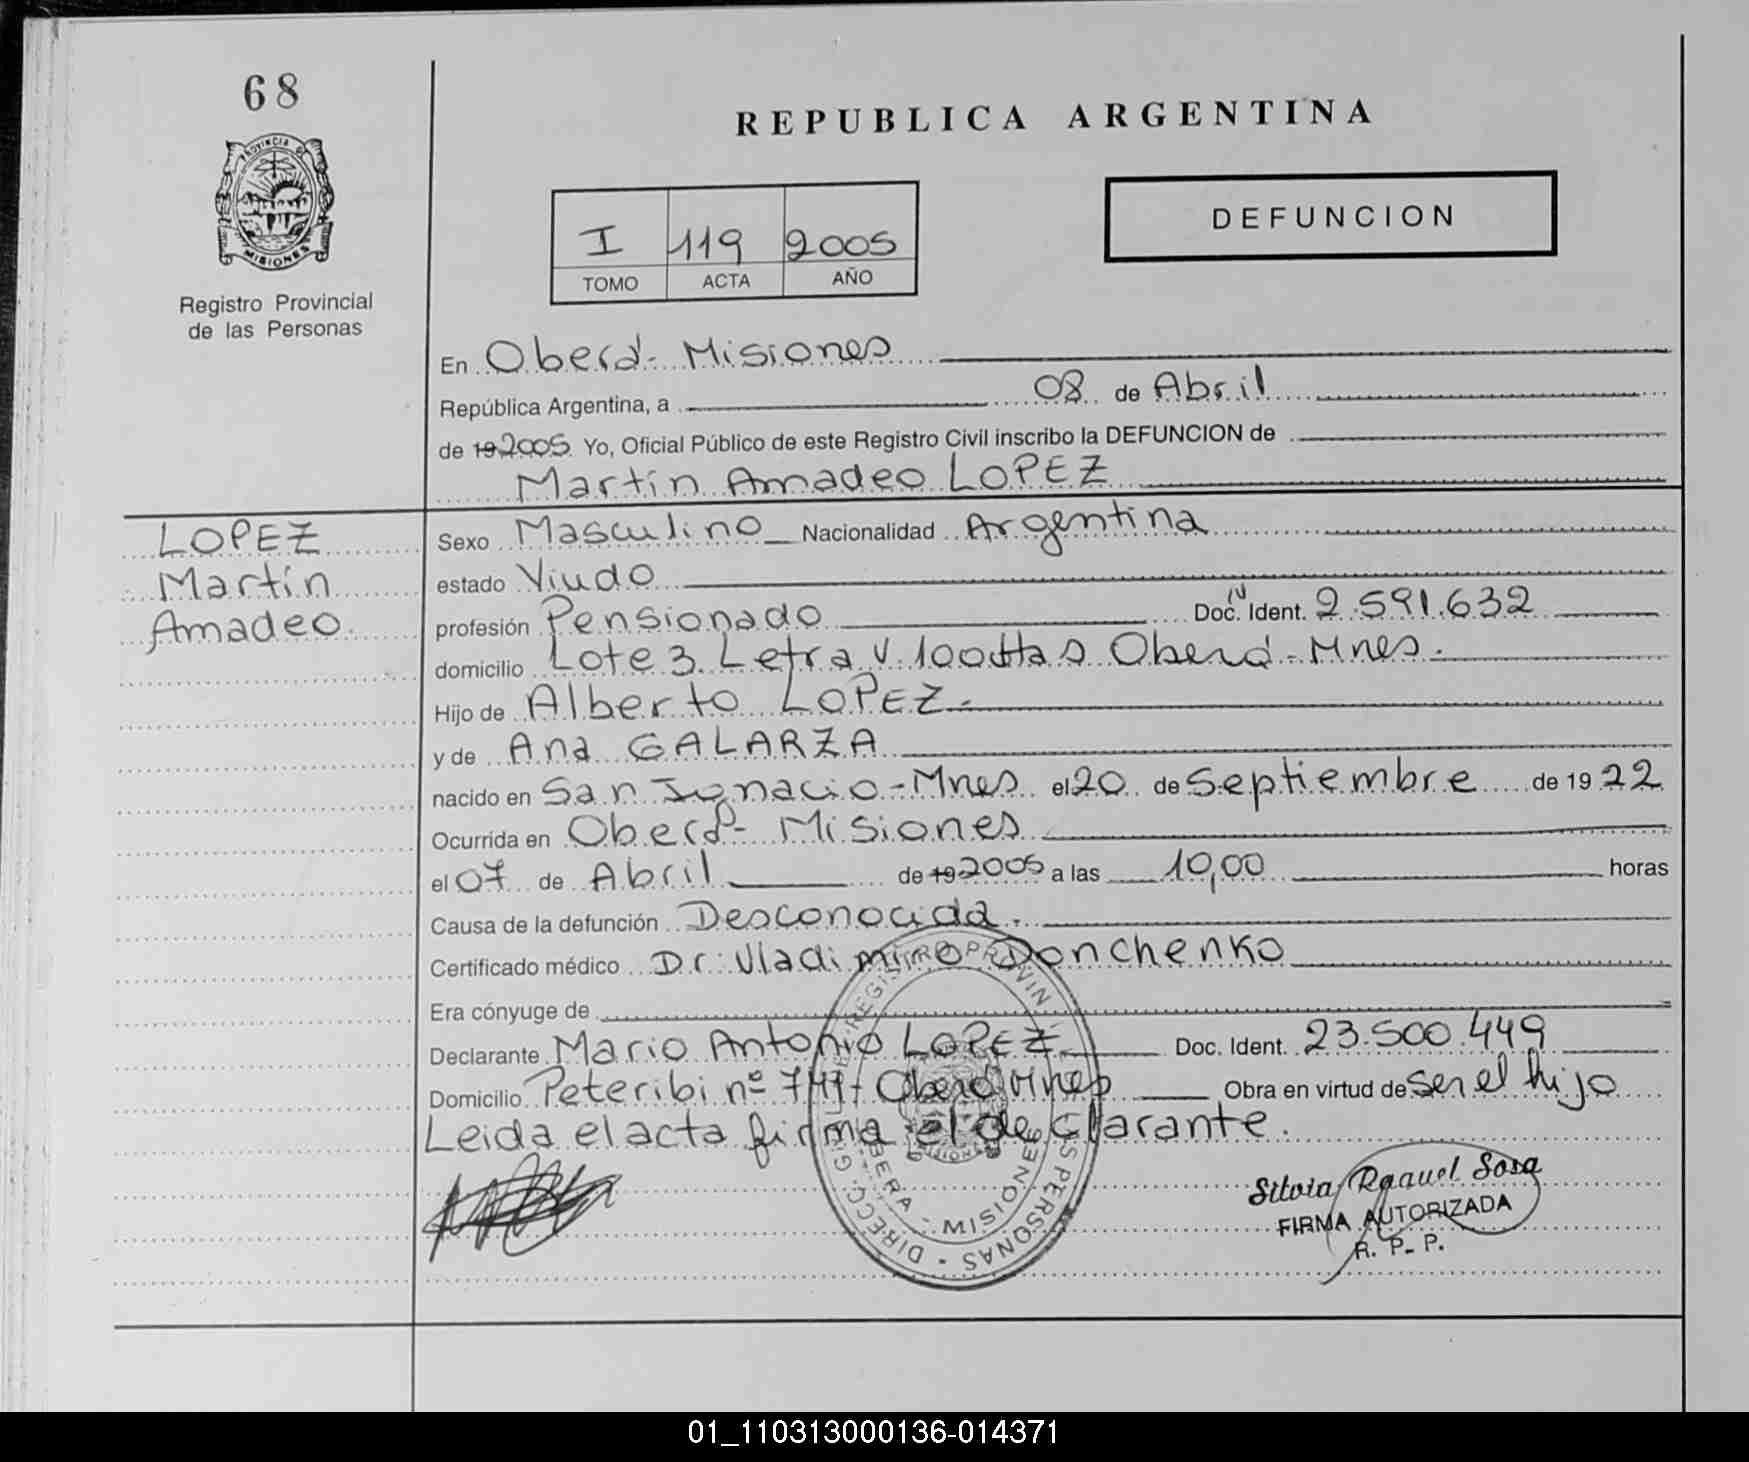 68
PROVINCIA DE
MISIONES
Registro Provincial
de las Personas
REPUBLICA ARGENTINA
DEFUNCION
I 119 2005
TOMO ACTA AÑO
En Oberá - Misiones
República Argentina, a 08 de Abril
de 19 2005 Yo, Oficial Público de este Registro Civil inscribo la DEFUNCION de
Martín Amadeo LOPEZ
LOPEZ
Martín
Amadeo.
Sexo Masculino Nacionalidad Argentina
estado Viudo
profesión Pensionado Doc. Ident. 2.591.632
domicilio Lote 3 Letra V 100 Htas Oberá - Mnes.
Hijo de Alberto LOPEZ.-
y de Ana GALARZA
nacido en San Ignacio - Mnes el 20 de Septiembre de 19 22
Ocurrida en Oberá - Misiones
el 07 de Abril de 19 2005 a las 10,00 horas
Causa de la defunción Desconocida.
Certificado médico Dr: Vladimiro Donchenko
Era cónyuge de
Declarante Mario Antonio LOPEZ Doc. Ident. 23.500.449
Domicilio Peteribi nº Oberá Mnes Obra en virtud de ser el hijo
Leida el acta firma el declarante.
DIRECC. GRAL. REGISTRO PROVIN. LAS PERSONAS
OBERA - MISIONES
MISIONES
Silvia Raquel Sosa
FIRMA AUTORIZADA
R. P. P.
01_110313000136-014371